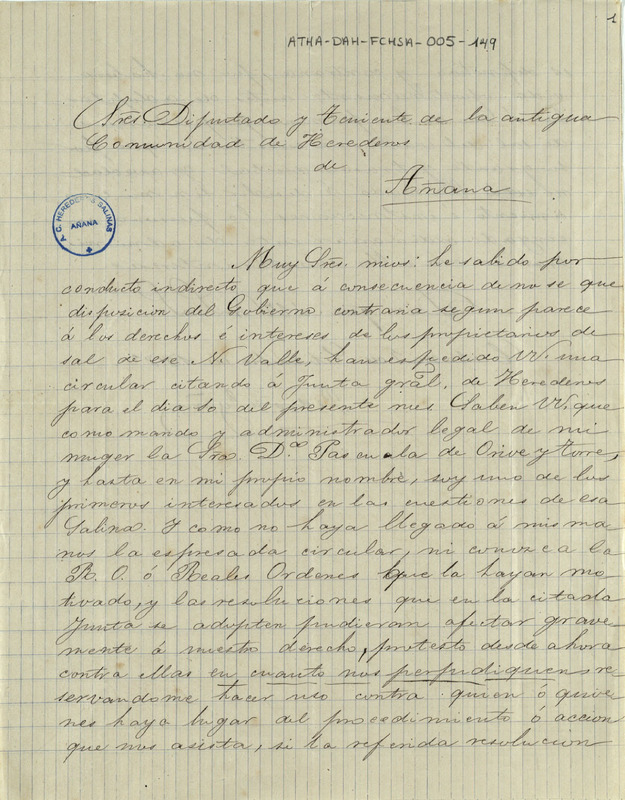 1
ATHA-DAH-FCHSA-005-149
Sres Diputado y Teniente de la antigua
Comunidad de Herederos
de
Añana
A. C. HEREDEROS SALINAS
AÑANA
Muy Sres. mios: he sabido por
conducto indirecto que á consecuencia de no se que
disposicion del Gobierno contraria segun parece
á los derechos é intereses de los propietarios de
sal de ese N. Valle, han espedido VV. una
circular citando á Junta gral. de Herederos
para el dia 30 del presente mes. Saben VV. que
como marido y administrador legal de mi
muger la Sra. D.ª Pascuala de Orive y torre,
y hasta en mi propio nombre, soy uno de los
primeros interesados en las cuestiones de esa
Salina. Y como no haya llegado á mis ma
nos la espresada circular, ni conozca la
R. O. ó Reales Ordenes que la hayan mo
tivado, y las resoluciones que en la citada
Junta se adopten pudieran afectar grave
mente á nuestro derecho, protesto desde ahora
contra ellas en cuanto nos perjudiquen re
servandome hacer uso contra quien ó quie
nes haya lugar del procedimiento ó accion
que nos asista, si la referida resolucion